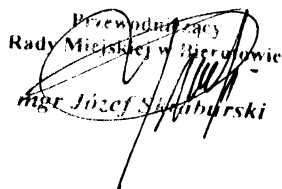 Przewodniczący
Rady Miejskiej w Bierutowie
mgr Józef